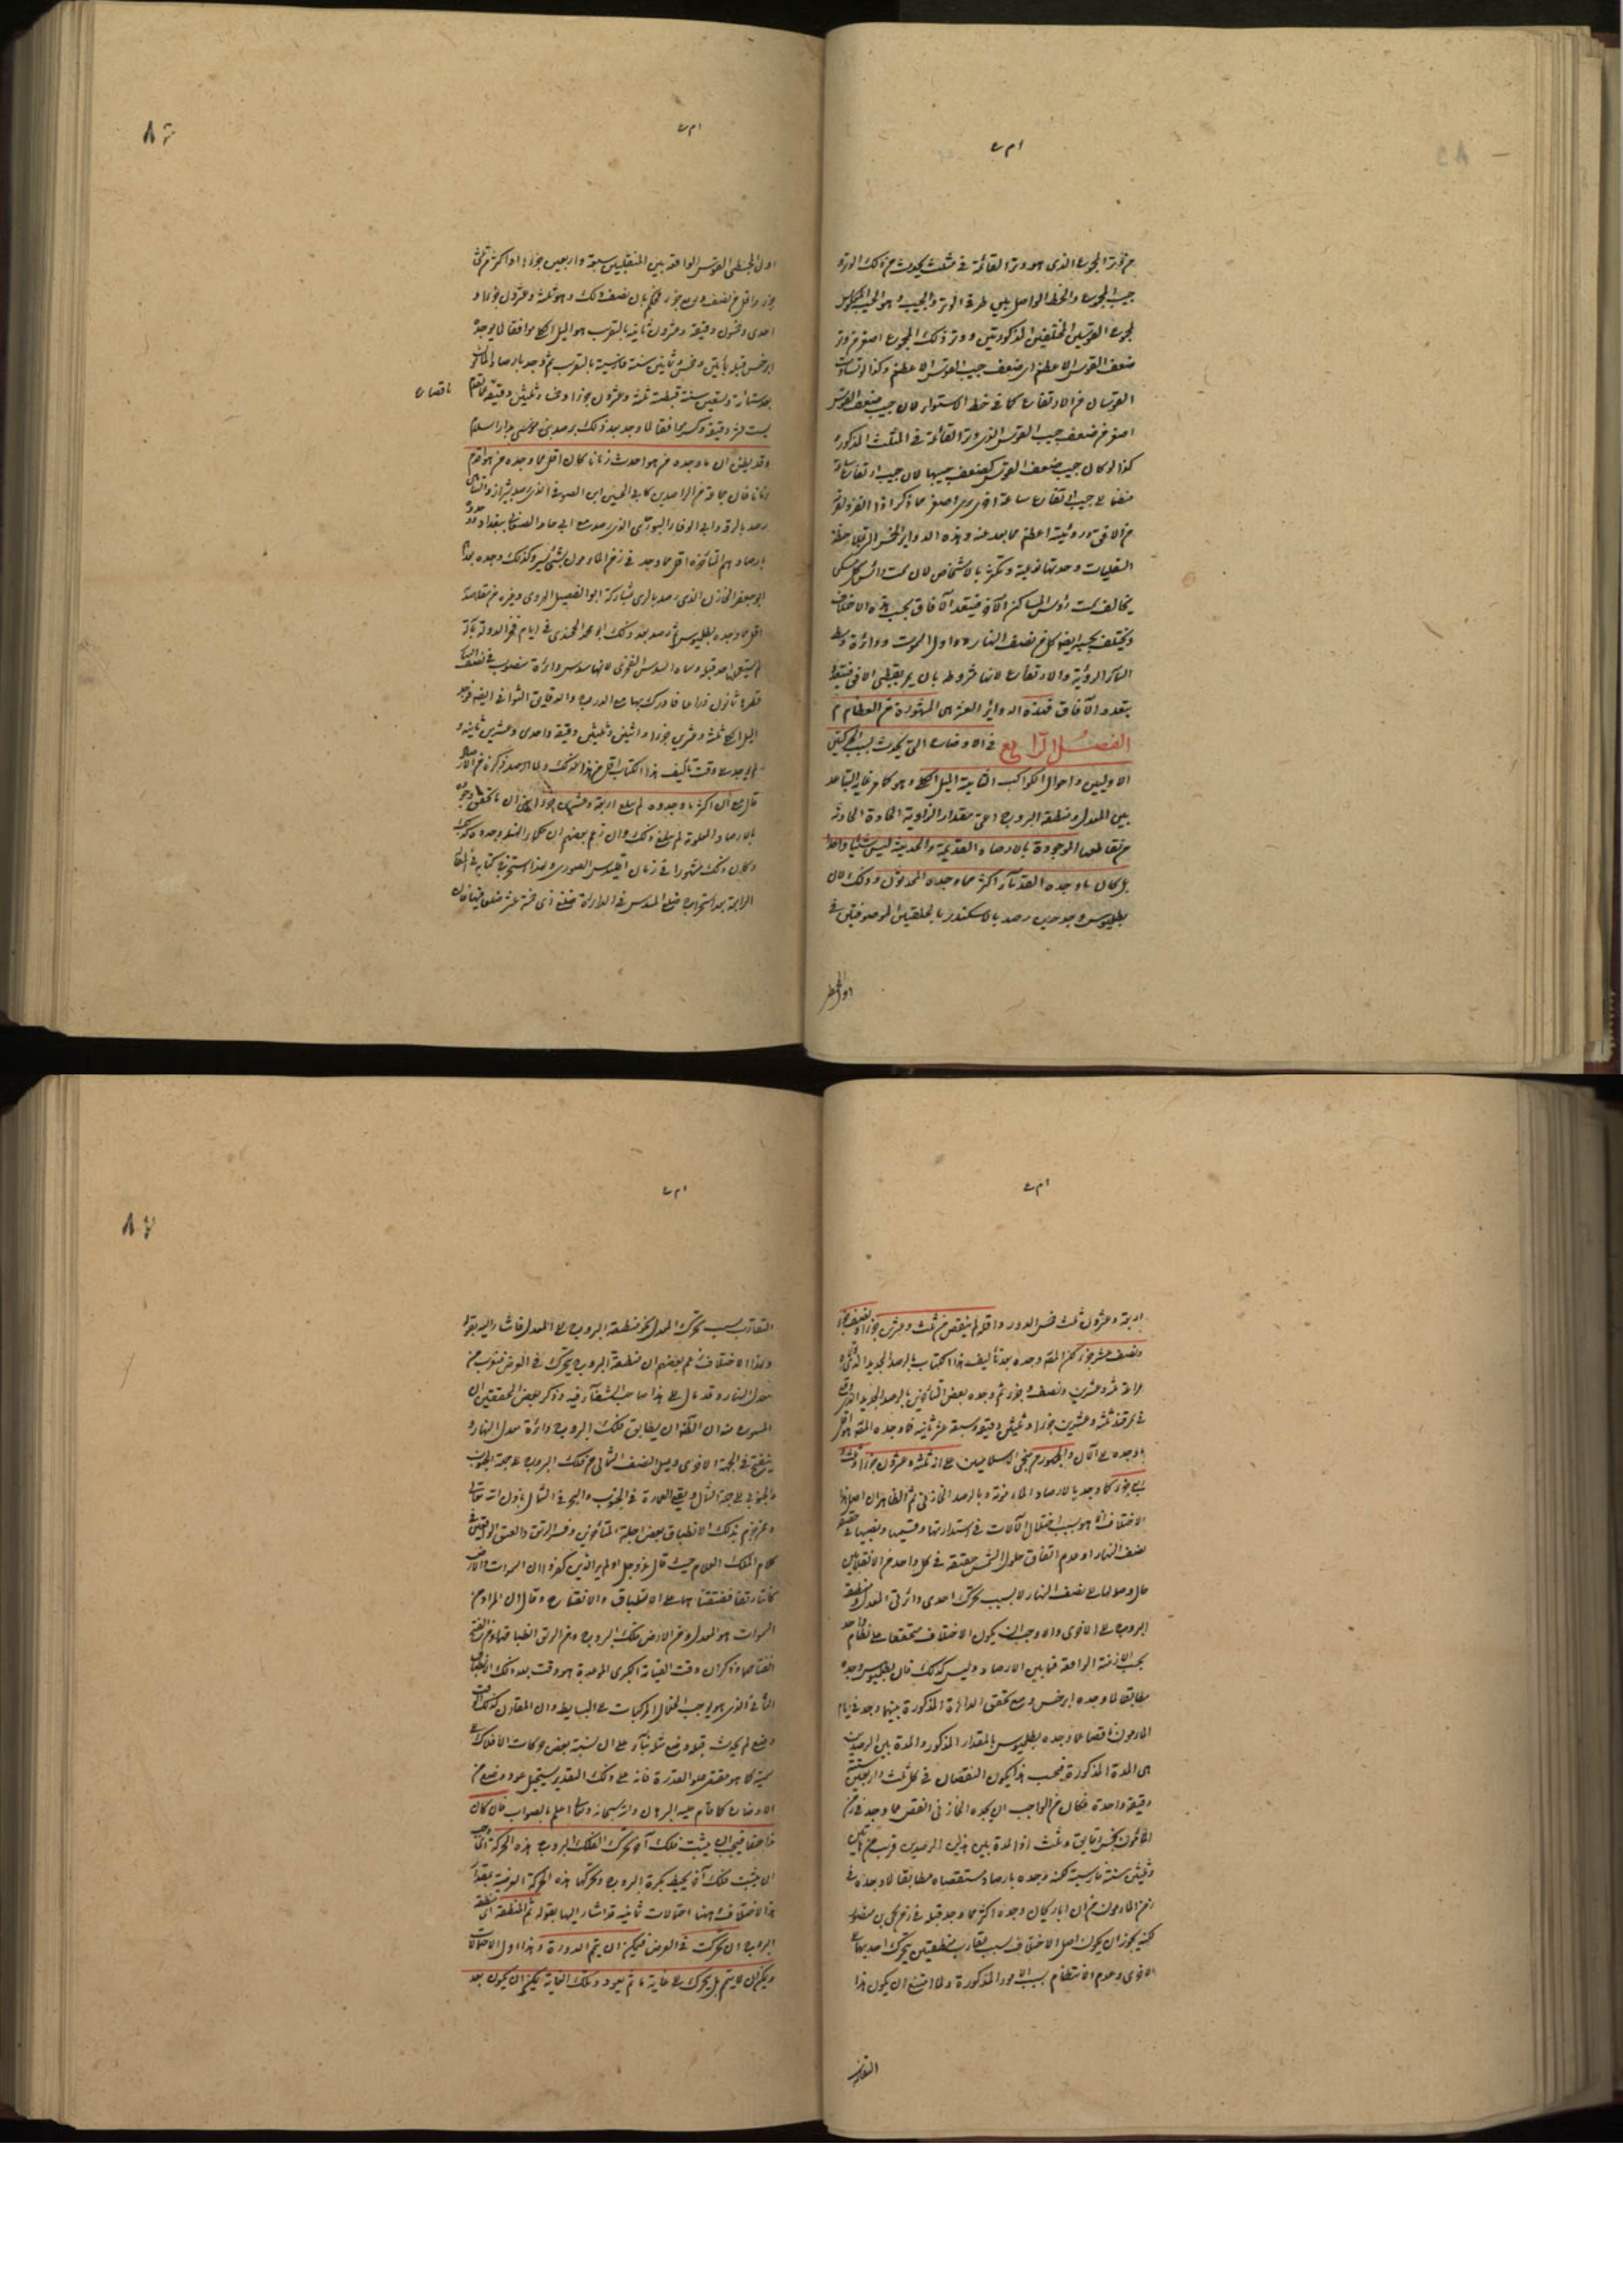 ام ے
من وتر المجموع الذى هو وتر القائمة فى مثلث يحدث من ذلك الوتر و
جيب المجموع والخط الواصل بين طرفى الوتر والجيب وهو الجيب المعكوس
لمجموع القوسين المختلفين المذكورتين ووتر ذلك المجموع اصغر من وتر
ضعف القوس الاعظم اى ضعف جيب القوس الاعظم وكذا لو تساوت
القوسان من الارتفاع كما فى خط الاستواء لان جيب ضعف القوس
اصغر من ضعف جيب القوس الذى وتر القائمة فى المثلث المذكورة
كذا لو كان جيب ضعف القوس كضعف جيبها لان جيب ارتفاع ساعة
من الافق يرى رؤيته اعظم مما بعد عنه وهذه الدواير الخمس
وحدتها نوعية وتكثر بالاشخاص لان سمت رأس كل مسكن
يخالف سمت رؤس المساكن الآخر فيتعدد الآفاق بحسب هذه الاختلاف
ويختلف بحسبه ايضا كل من نصف النهار واول السموت ودائرة وسط
السماء الرؤية والارتفاع لانها مشروطة بان يمر بقطبى الافق فيتعدد
بتعدد الآفاق فهذه الدواير العشر هى المشهورة من العظام م
الفصل الرابع فى الاوضاع التى يحدث بسبب الحركتين
الاوليين واحوال الكواكب الثابتة الميل الكلى وهو كما مر غاية التباعد
بين المعدل ومنطقة البروج اعنى مقدار الزاوية الحادة الحادثة
من تقاطعهما الموجودة بالارصاد القديمة والحديثة ليس شيئا واحدا
بل كان ما وجده القدماء اكثر مما وجده المحدثون وذلك لان
بطليموس وجد حين رصد بالاسكندرية بالحلقتين الموصوفتين فى
اول المجسطى
ام ے
٨٦
اول المجسطى القوس الواقعة بين المنقلبين سبعة واربعين جزءا واكثر من ثلثى
جزء واقل من نصف وربع جزء فحكم بان نصف ذلك وهو ثلثة وعشرون جزءا و
احدى وخمسون دقيقة وعشرون ثانية بالتقريب هو الميل الكلى موافقا لما وجده
ابرخس قبله بمائتين وخمس وثمانين سنة فارسية بالتقريب ثم وجد بارصاد المأمون
بعد ستمائة وتسعين سنة قبطية ثلثة وعشرون جزءا وخمسا وثلثين دقيقة
ناقصا ع
بست عشرة دقيقة وكسر موافقا لما وجد بعد ذلك برصد بنى موسى بدار السلام
وقد يظن ان ما وجده من هو احدث زمانا كان اقل مما وجده من هو اقدم
زمانا فان جماعة من الراصدين كابى الحسين ابن الصوفى الذى رصد بشيراز
رصد بالرقة وابى الوفاء البوزجانى الذى رصد مع ابى حامد الصغانى ببغداد وجدوا
بارصادهم المتأخرة اقل مما وجد فى زمن المأمون بشىء يسير وكذلك وجده
ابو جعفر الخازن الذى رصد بالرى بمشاركة ابو الفضل الهروى وغيره
اقل مما وجده بطليموس ثم رصد بعد ذلك ابو محمد الخجندى فى ايام فخر الدولة بآلة
لم يستعملها احد قبله وسماه السدس الفخرى لانها سدس دائرة منصوب فى نصف النهار
قطرها ثمانون ذراعا فادرك بها مع الدرج والدقايق الثوانى ايضا فوجد
الميل الكلى ثلثة وعشرين جزءا واثنين وثلثين دقيقة واحدى وعشرين ثانية و
لم يوجد الى وقت تأليف هذا الكتاب اقل من هذا
قال مع ان اكثر ما وجدوه لم يبلغ اربعة وعشرين جزءا
بالارصاد المعلومة لم يبلغ ذلك وان زعم بعضهم ان حكماء الهند وجدوه كذلك
وكان ذلك مشهورا فى زمان اقليدس الصورى ولهذا استخرج فى كتابه فى المقالة
الرابعة بعد استخراج ضلع المسدس فى الدائرة ضلع ذى خمسة عشر ضلعا
ام ے
اربعة وعشرون ثلث خمس الدور واقله لم ينقص من ثلث وعشرين جزءا ونصف جزء
ونصف عشر جزء لكن المص وجده بعد تأليف هذا الكتاب بالرصد الجديد الذى
بمراغة ثلثة وعشرين ونصف جزء ثم وجده بعض المتأخرين بالرصد الجديد الذى وقع
فى سمرقند ثلثة وعشرين جزءا وثلثين دقيقة وسبعة عشر ثانية فما وجده المص هو اقل
ما وجده الى الآن والجمهور من منجمى الاسلاميين على انه ثلثة وعشرون جزءا وثلث و
ربع جزء كما وجد بالارصاد المأمونية وبالرصد الخازنى ثم الظاهر ان اصل هذا
الاختلاف انما هو بسبب اختلال الآلات فى استدارتها وقسمتها ونصبها فى حقيقة
نصف النهار او عدم اتفاق حلول الشمس حقيقة فى كل واحد من الانقلابين
حال وصولها الى نصف النهار لا بسبب تحرك احدى دائرتى المعدل ومنطقة
البروج الى الاخرى والا وجب ان يكون الاختلاف متحققا على نظام واحد
بحسب الازمنة الواقعة فيما بين الارصاد وليس كذلك فان بطليموس وجده
مطابقا لما وجده ابرخس ومع تحقق المدة المذكورة بينهما وجد فى ايام
المأمون ناقصا عما وجده بطليموس بالمقدار المذكور والمدة بين الرصدين
هى المدة المذكورة فبحسب هذا يكون النقصان فى كل ثلث واربعين سنة
دقيقة واحدة فكان من الواجب ان يجده الخازنى انقص مما وجد فى زمن
المأمون بخمس دقايق وثلث اذ المدة بين هذين الرصدين قريب من مأتين
وثلثين سنة فارسية لكنه وجده بارصاد مستقصاة مطابقا لما وجده فى
زمن المأمون مع ان اهل زمان وجده اكثر مما وجد قبله فى زمن يحيى بن منصور
لكنه يجوز ان يكون اصل الاختلاف بسبب تقارب منطقتين يتحرك احديهما الى
الاخرى وعدم الانتظام بسبب الامور المذكورة ولما امتنع ان يكون هذا
التقارب
ام ے
٨٧
التقارب بسبب تحرك المعدل نحو منطقة البروج الى المعدل فاشار اليه بقوله
ولهذا الاختلاف زعم بعضهم ان منطقة البروج يتحرك فى العرض فيقرب من
معدل النهار وقد مال الى هذا صاحب الشفاء فيه وذكر بعض المحققين ان
المشهور منه ان امكنه ان يطابق فلك البروج دائرة معدل النهار و
ينفتح فى الجهة الاخرى ويميل النصف الشمالى من فلك البروج الى جهة الجنوب
والجنوبى الى جهة الشمال ويقع العمارة فى الجنوب والبحر فى الشمال باذن الله تعالى
وعبر عن ذلك الانطباق بعض اجلة المتأخرين وفسر الرتق والفتق الواقعين فى
كلام الملك العلام حيث قال عز وجل اولم ير الذين كفروا ان السموات والارض
كانتا رتقا ففتقناهما على الانطباق والانفتاح وقال ان المراد من
السموات هو المعدل ومن الارض فلك البروج ومن الرتق انطباقهما ومن الفتق
انفتاحهما وذكر ان وقت القيامة الكبرى الموعودة هو وقت بعد ذلك الانطباق
الثانى الذى هو يوجب انحلال المركبات الى البسايط
وضع لم يحدث قبله وضع مشابه له على ان نسبة بعض حركات الافلاك
الاوضاع كما قام عليه البرهان والله سبحانه وتعالى اعلم بالصواب فان كان
هذا حقا فيجب ان يثبت فلك آخر يحرك الفلك البروج هذه الحركة
ان يثبت فلك آخر يحيط بكرة البروج ويحركها هذه الحركة العرضية بمقدار
هذا الاختلاف وههنا احتمالات ثمانية قد اشار اليها بقوله ثم المنطقة اى منطقة
البروج ان تحركت فى العرض فيمكن ان يتم الدورة وهذا اول الاحتمالات
ويمكن ان لا يتم بل يتحرك الى غاية ما ثم يعود وتلك الغاية يمكن ان يكون بعد